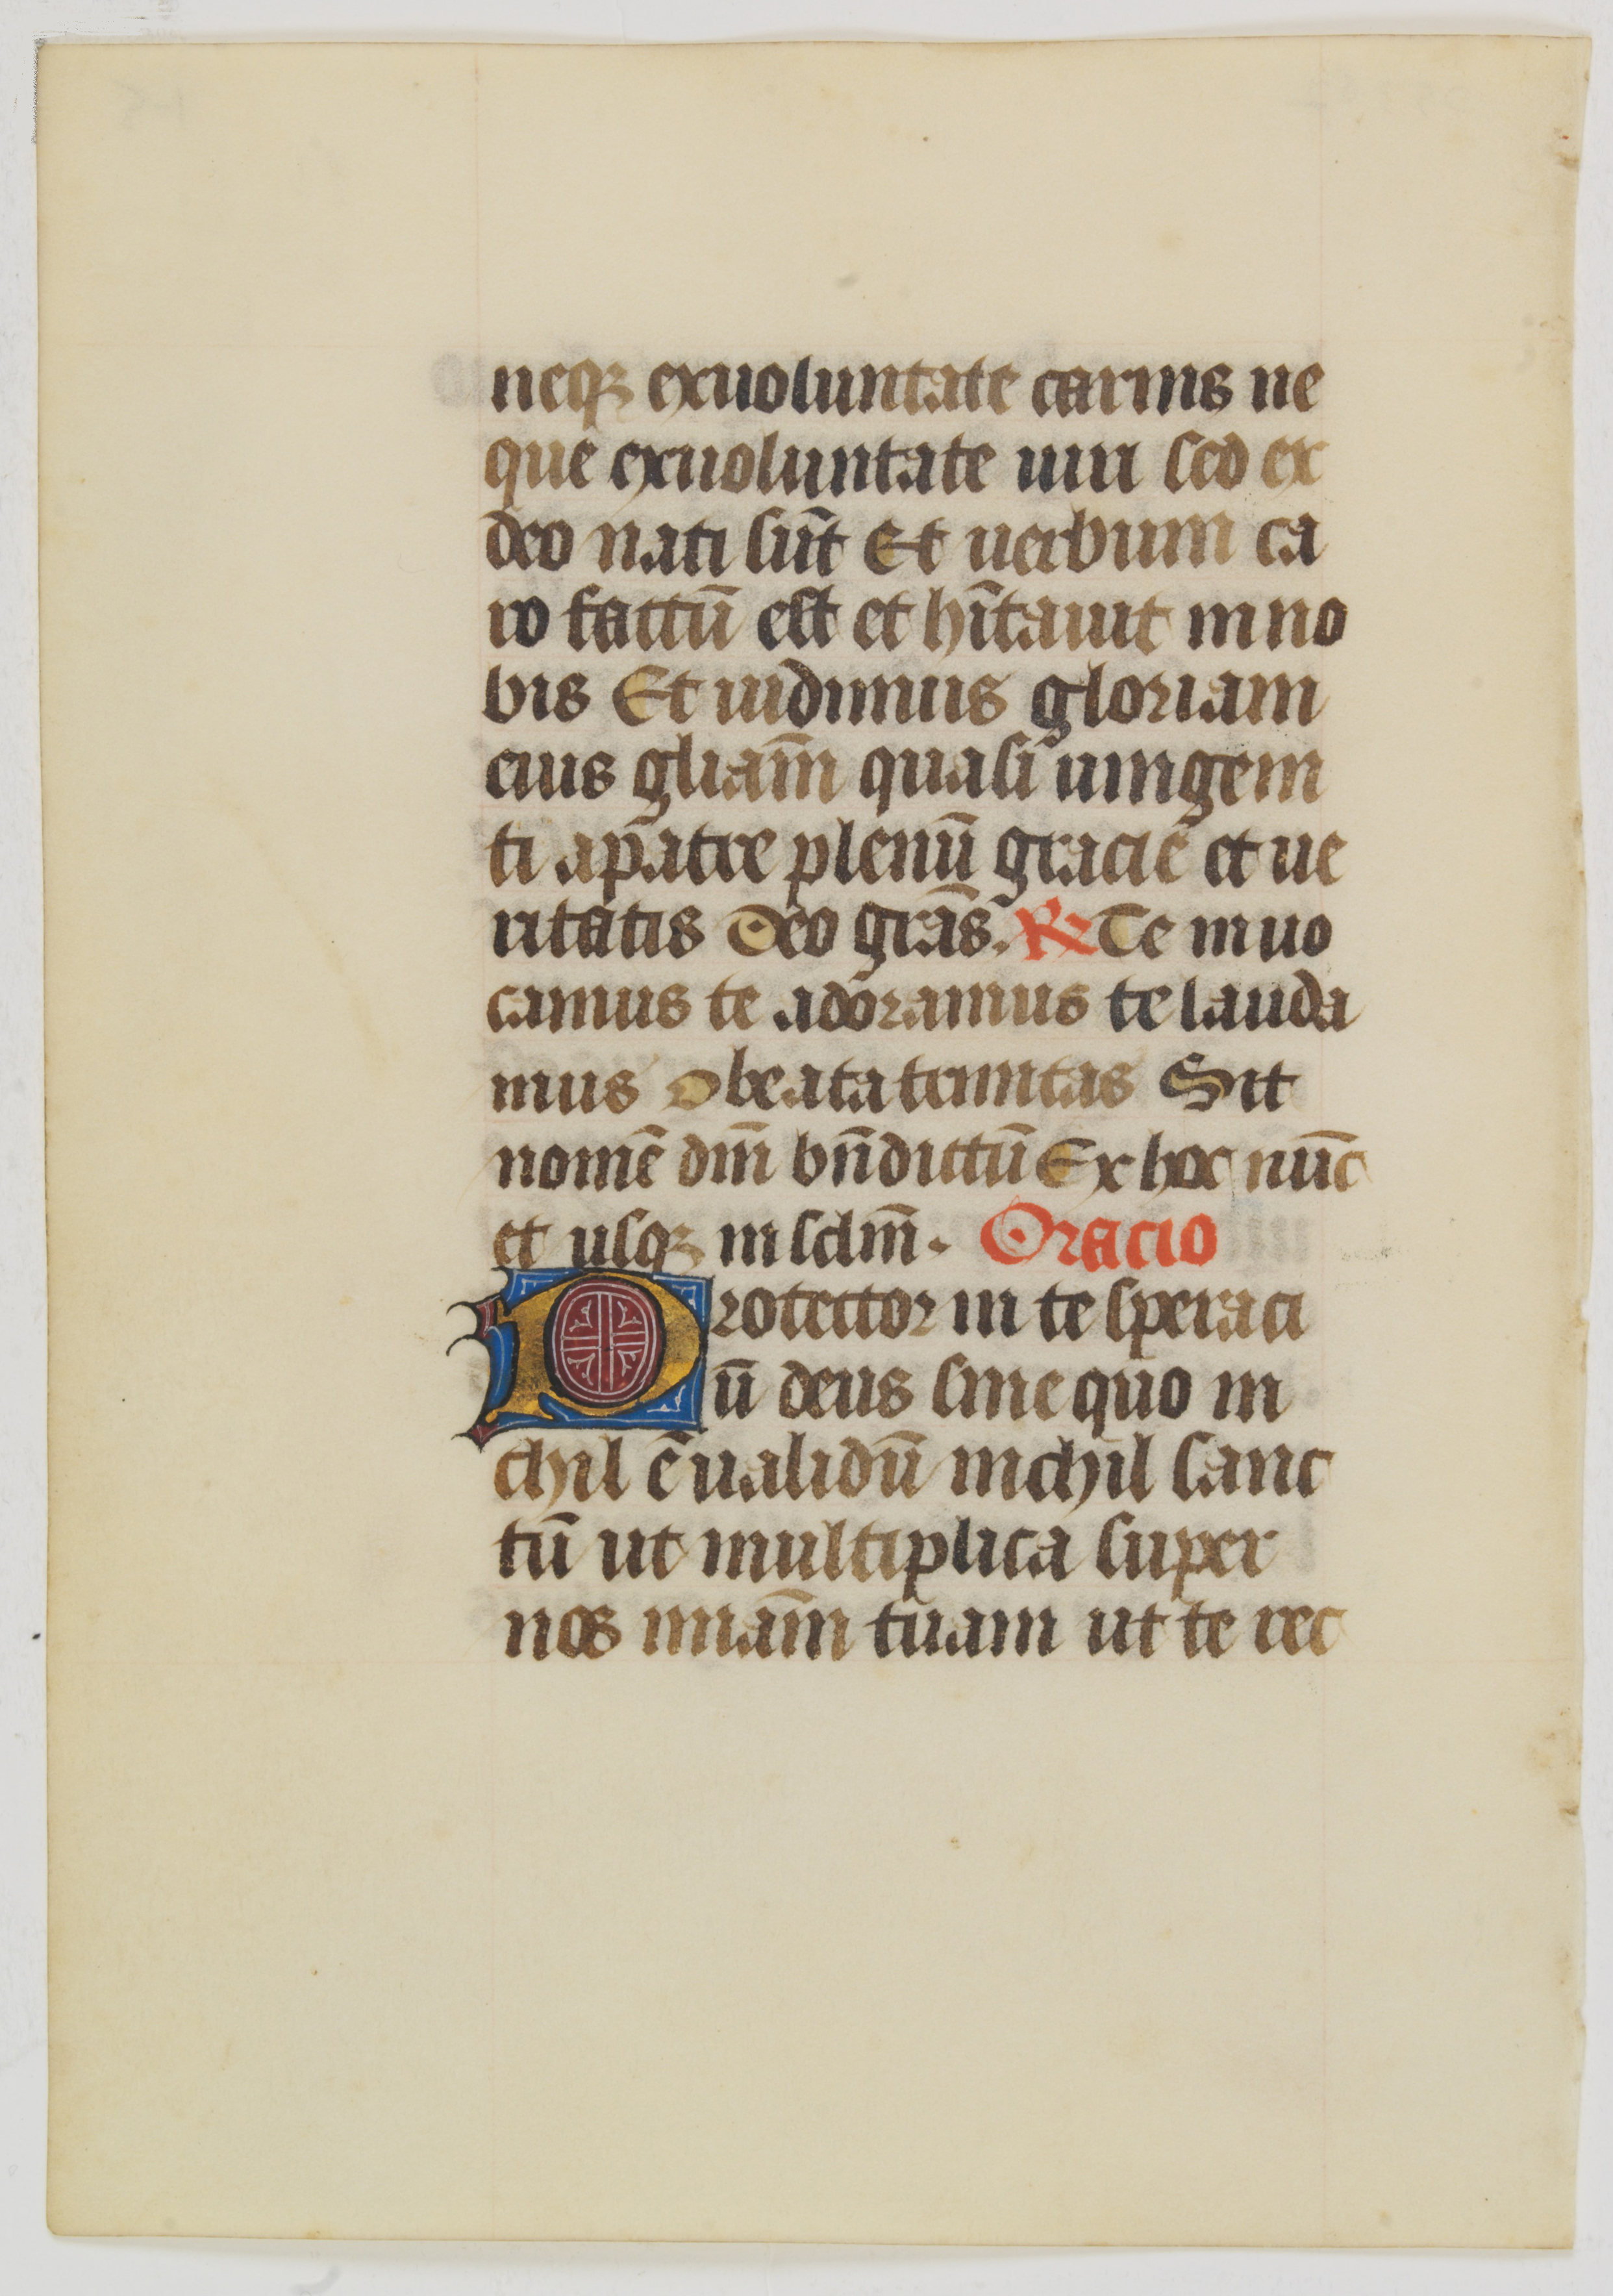 neqꝫ exuoluntate carnis ne
que exuoluntate uiri sed ex
deo nati sūt Et uerbum ca
ro factū est et hītauit in no
bis Et uidimus gloriam
eius gliam̄ quasi unigeni
ti apatre plenū gracie et ue
ritatis Deo grās. ℟ Te inuo
camus te adoramus te lauda
mus O beata trinitas Sit
nomē dn̄i bn̄dictū Ex hoc nūc
et usqꝫ in sclm̄. Oracio
Protector in te speraci
ū deus sine quo ni
chil ē ualidū nichil sanc
tū ut multiplica super
nos miam̄ tuam ut te rec